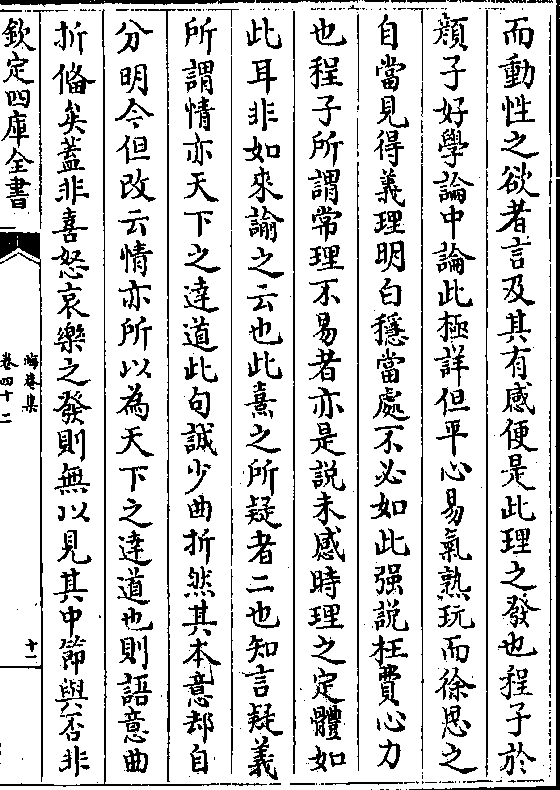 而動性之欲者言及其有感便是此理之發也程子於
顔子好學論中論此極詳但平心易氣熟玩而徐思之
自當見得義理明白穩當處不必如此强說枉費心力
也程子所謂常理不易者亦是説未感時理之定體如
此耳非如來諭之云也此熹之所疑者二也知言疑義
所謂情亦天下之達道此句誠少曲折然其本意却自
分明今但改云情亦所以為天下之達道也則語意曲
折備矣蓋非喜怒哀樂之發則無以見其中節與否非
欽定四庫全書
晦菴集
卷四十二
十一